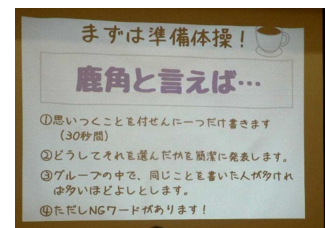 まずは準備体操！
鹿角と言えば…
①思いつくことを付せんに一つだけ書きます
（30秒間）
②どうしてそれを選んだかを簡潔に発表します。
③グループの中で、同じことを書いた人が多けれ
ば多いほどよしとします。
④ただしNGワードがあります！